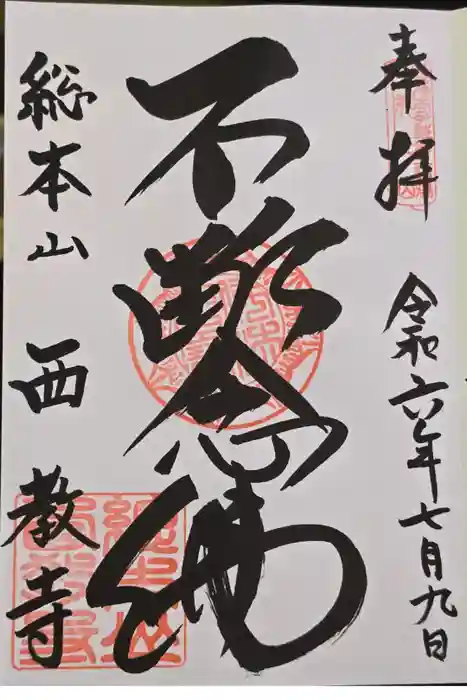 奉拝
令和六年七月九日
不断念佛
総本山 西教寺